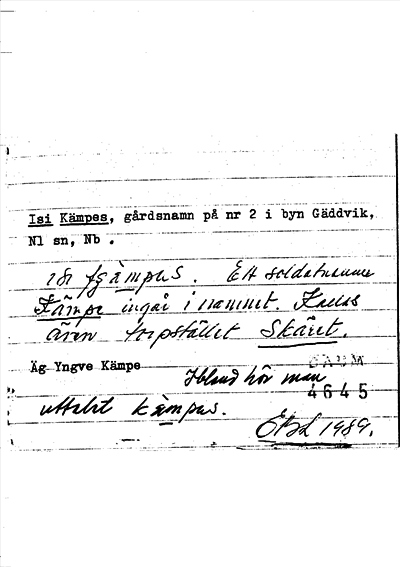 Isi Kämpes, gårdsnamn på nr 2 i byn Gäddvik,
Nl sn, Nb .
Ett soldatnamn
Kämpe ingår i namnet. Kallas
även torpstället Skäret.
Äg Yngve Kämpe
Ibland hör man
DAUM
4645
uttalet kämpus.
EBL 1989.